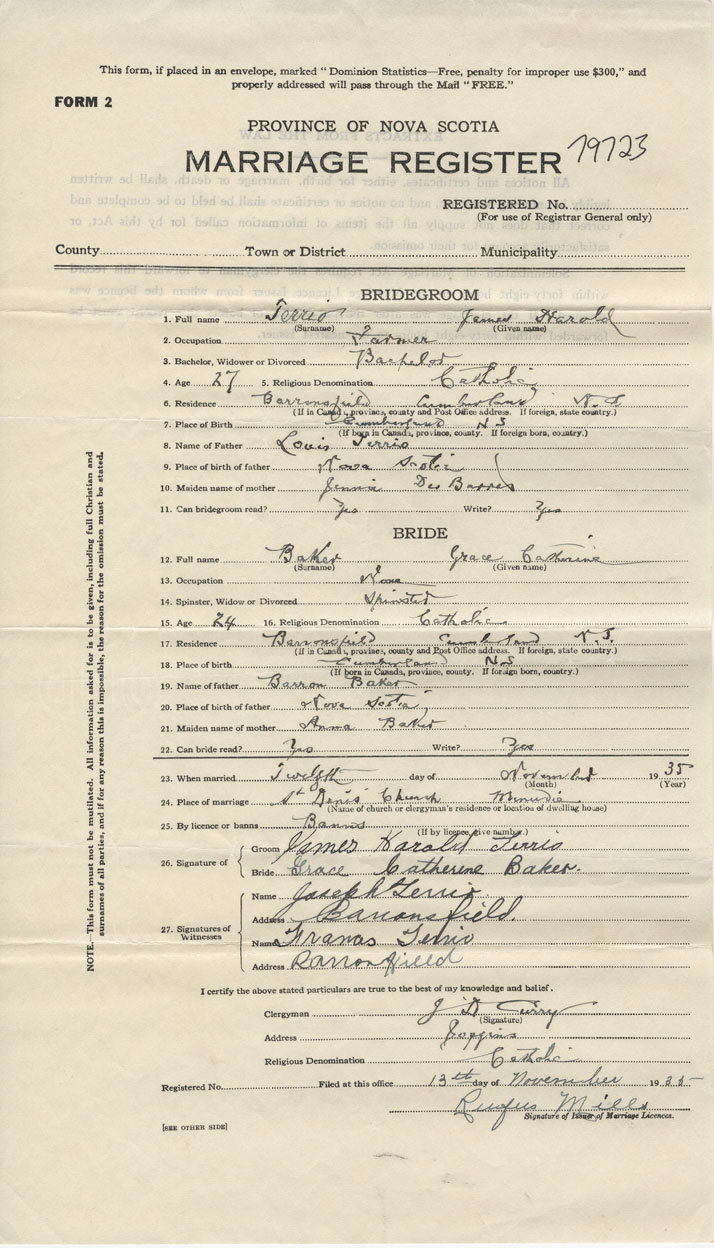 This form, if placed in an envelope, marked "Dominion Statistics—Free, penalty for improper use $300," and
properly addressed will pass through the Mail "FREE."
FORM 2
PROVINCE OF NOVA SCOTIA
MARRIAGE REGISTER 19723
REGISTERED No.
(For use of Registrar General only)
County Town or District Municipality
BRIDEGROOM
1. Full name Terrio James Harold
(Surname) (Given name)
2. Occupation Farmer
3. Bachelor, Widower or Divorced Bachelor
4. Age 27 5. Religious Denomination Catholic
6. Residence Barronsfield Cumberland N.S.
(If in Canada, province, county and Post Office address. If foreign, state country.)
7. Place of Birth Cumberland N S
(If born in Canada, province, county. If foreign born, country.)
8. Name of Father Louis Terrio
9. Place of birth of father Nova Scotia
10. Maiden name of mother Jennie Des Barres
11. Can bridegroom read? Yes Write? Yes
BRIDE
12. Full name Baker Grace Catherine
(Surname) (Given name)
13. Occupation None
14. Spinster, Widow or Divorced Spinster
15. Age 24 16. Religious Denomination Catholic
17. Residence Barronsfield Cumberland N.S.
(If in Canada, province, county and Post Office address. If foreign, state country.)
18. Place of birth Cumberland N.S
(If born in Canada, province, county. If foreign born, country.)
19. Name of father Barron Baker
20. Place of birth of father Nova Scotia
21. Maiden name of mother Anna Baker
22. Can bride read? Yes Write? Yes
23. When married Twelfth day of November 1935
(Month) (Year)
24. Place of marriage St Denis Church Minudie
(Name of church or clergyman's residence or location of dwelling house)
25. By licence or banns Banns
(If by licence, give number.)
26. Signature of Groom James Harold Terrio
Bride Grace Catherene Baker.
27. Signatures of Witnesses Name Joseph Terrio
Address Barronsfield.
Name Francis Terrio
Address Barronsfield
I certify the above stated particulars are true to the best of my knowledge and belief.
Clergyman J D Curry
(Signature)
Address Joggins
Religious Denomination Catholic
Registered No. Filed at this office 13th day of November 1935
Rufus Mills
Signature of Issuer of Marriage Licences.
[SEE OTHER SIDE]
NOTE.—This form must not be mutilated. All information asked for is to be given, including full Christian and
surnames of all parties, and if for any reason this is impossible, the reason for the omission must be stated.